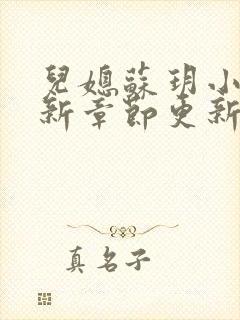 兒媳蘇玥小
新章節更新
真名子